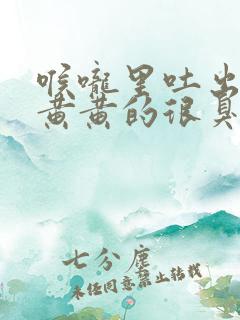 喉咙里吐出
黄黄的很臭
七分尘
未经同意禁止转载